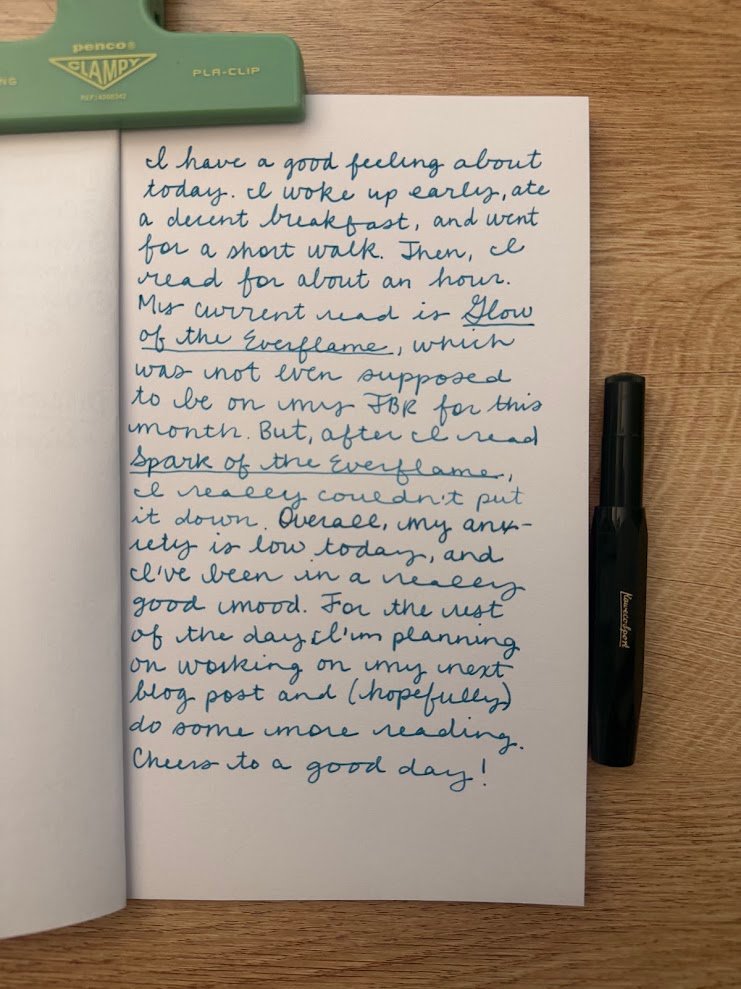 penco®
CLAMPY
PLA-CLIP
I have a good feeling about
today. I woke up early, ate
a decent breakfast, and went
for a short walk. Then, I
read for about an hour.
My current read is Glow
of the Everflame, which
was not even supposed
to be on my TBR for this
month. But, after I read
Spark of the Everflame,
I really couldn't put
it down. Overall, my anx-
iety is low today, and
I've been in a really
good mood. For the rest
of the day, I'm planning
on working on my next
blog post and (hopefully)
do some more reading.
Cheers to a good day!
Kaweco Sport